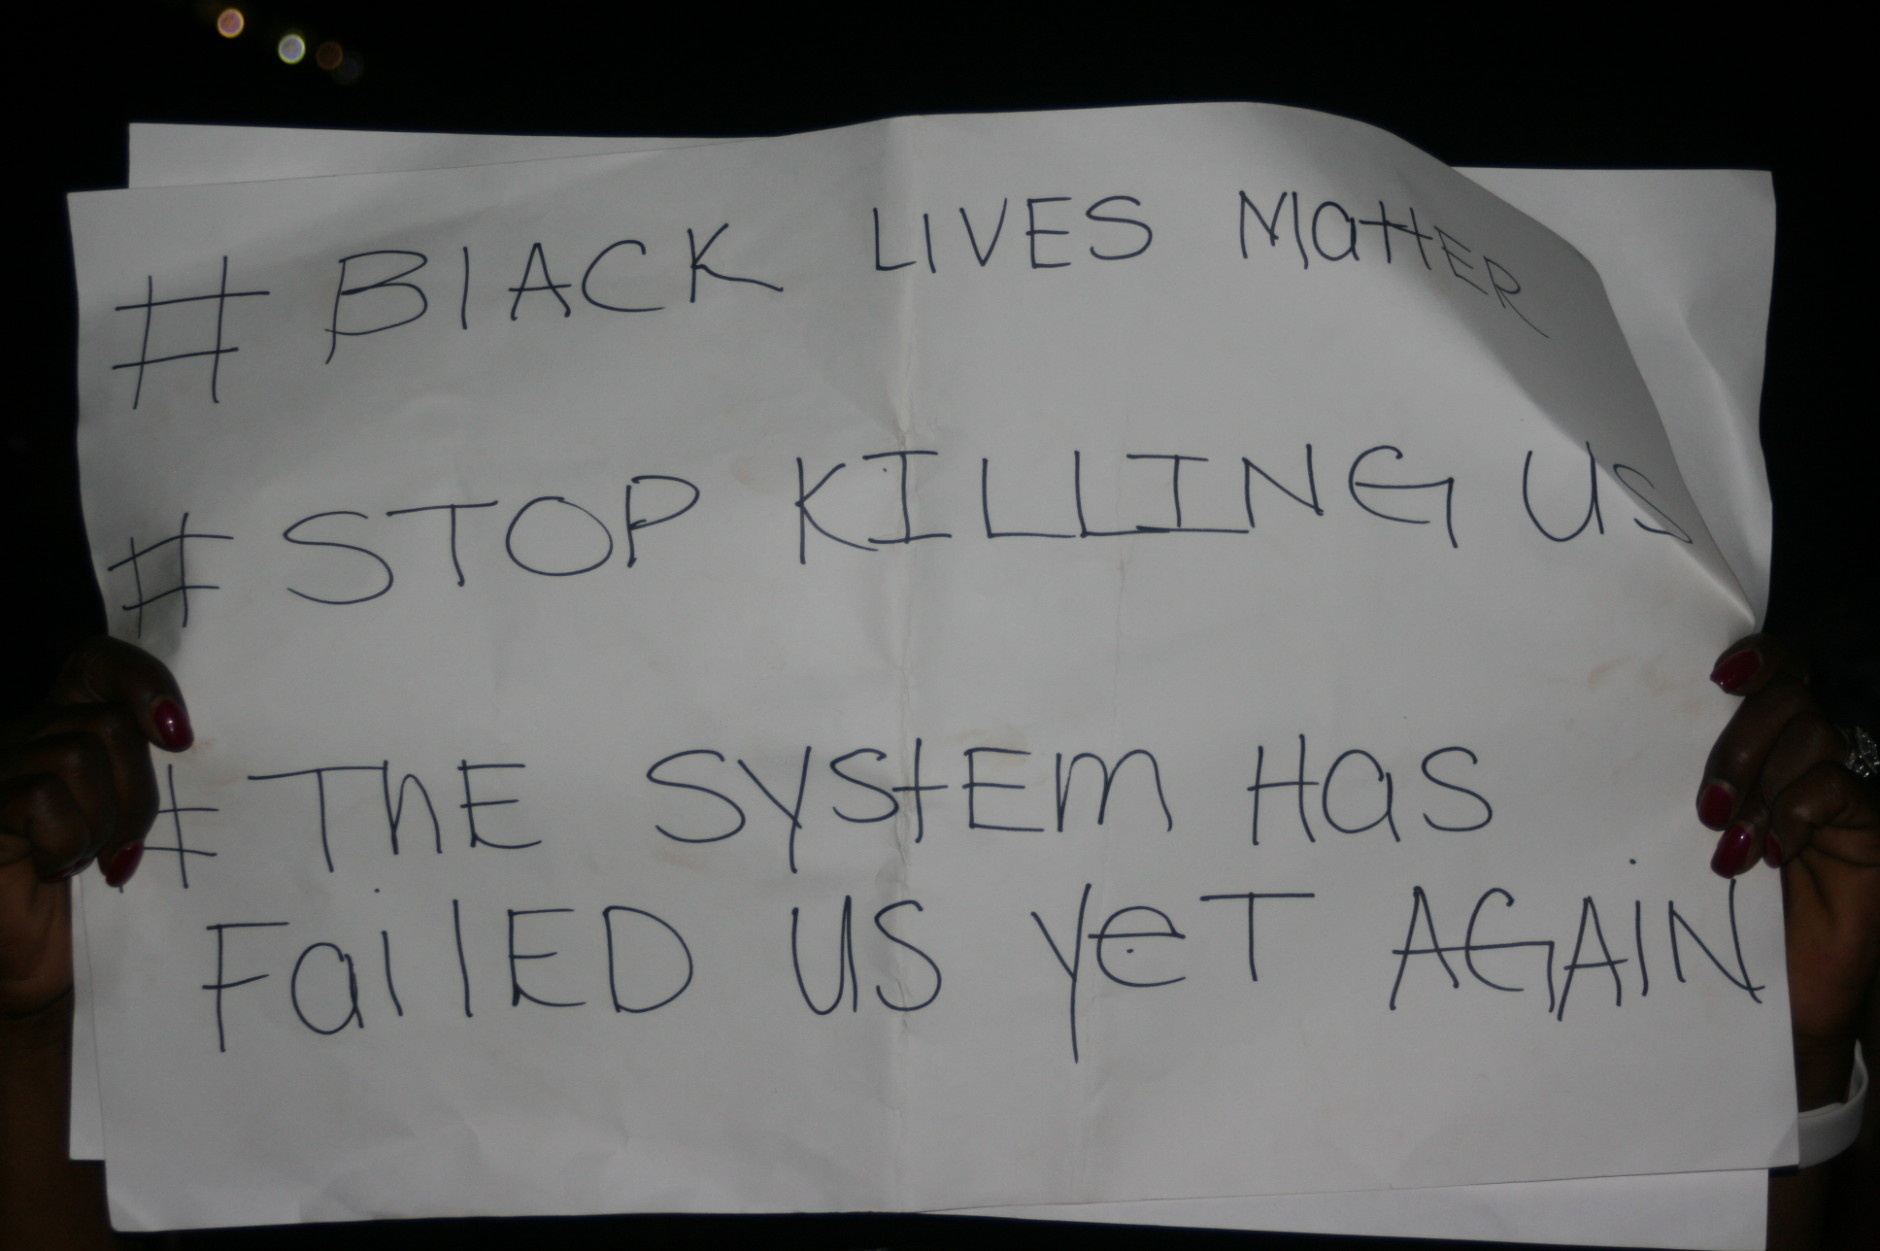 # BlACK LIVES MattER
# STOP KILLING US
# ThE SYStEm Has
FailED US YeT AGAiN